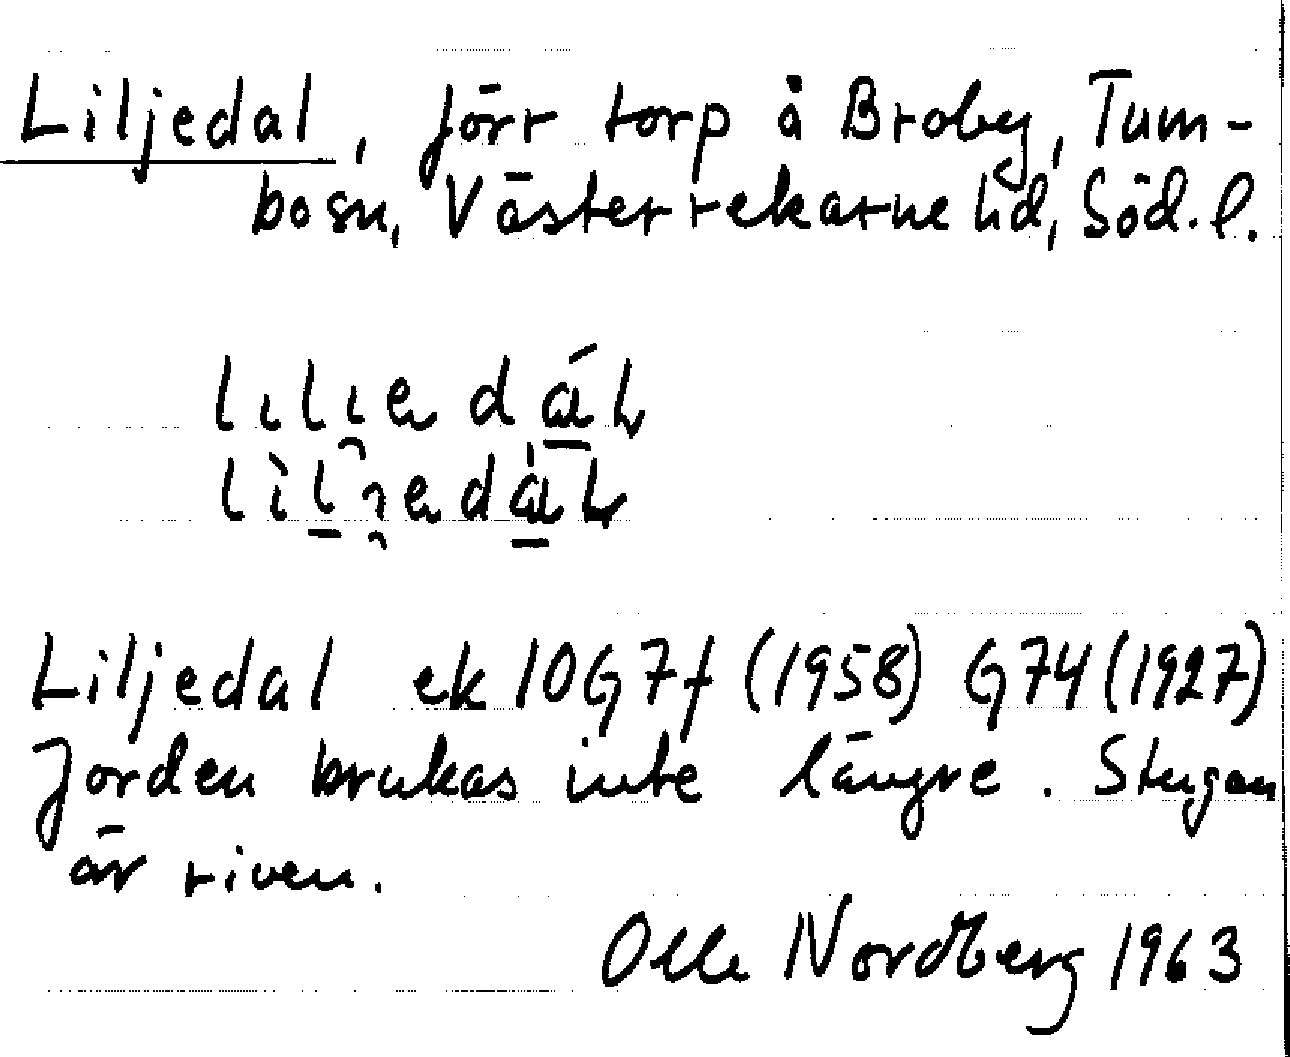 Liljedal, förr torp å Broby, Tum-
bosn, Västerrekarne hd, Söd. l.
Liljedal ek 10G7f (1958) G74 (1927)
Jorden brukas inte längre. Stugan
är riven.
Olle Nordberg 1963